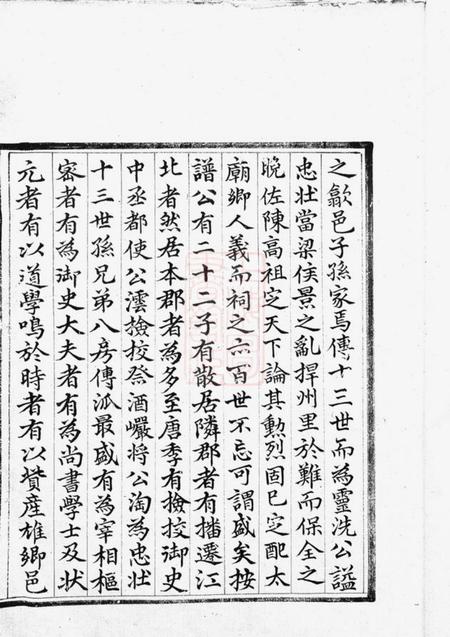 之歙邑子孫家焉傳十三世而為靈洗公謚
忠壯當梁侯景之亂捍州里於難而保全之
晚佐陳高祖定天下論其勲烈固已定配太
廟鄉人義而祠之亦百世不忘可謂盛矣按
譜公有二十二子有散居隣郡者有播遷江
北者然居本郡者為多至唐季有撿挍御史
中丞都使公澐撿挍祭酒巖將公淘為忠壯
十三世孫兄弟八房傳派最盛有為宰相樞
密者有為御史大夫者有為尚書學士及狀
元者有以道學鳴於時者有以貲産雄鄉邑